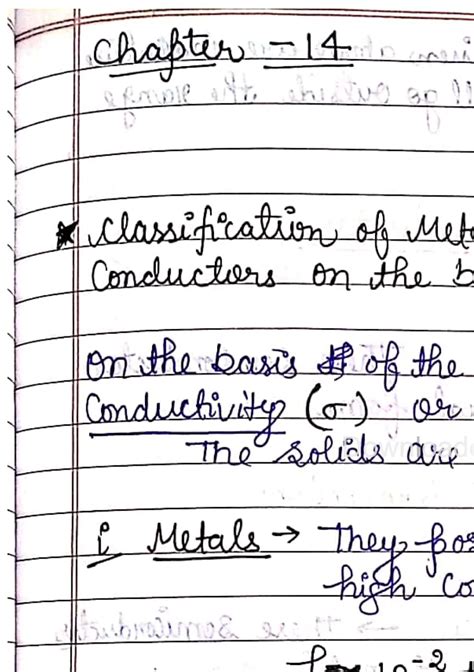 Chapter - 14
* Classification of Met
Conductors on the b
On the basis of the
Conductivity (σ) or
The solids are
i Metals → They pos
high Co
10⁻²